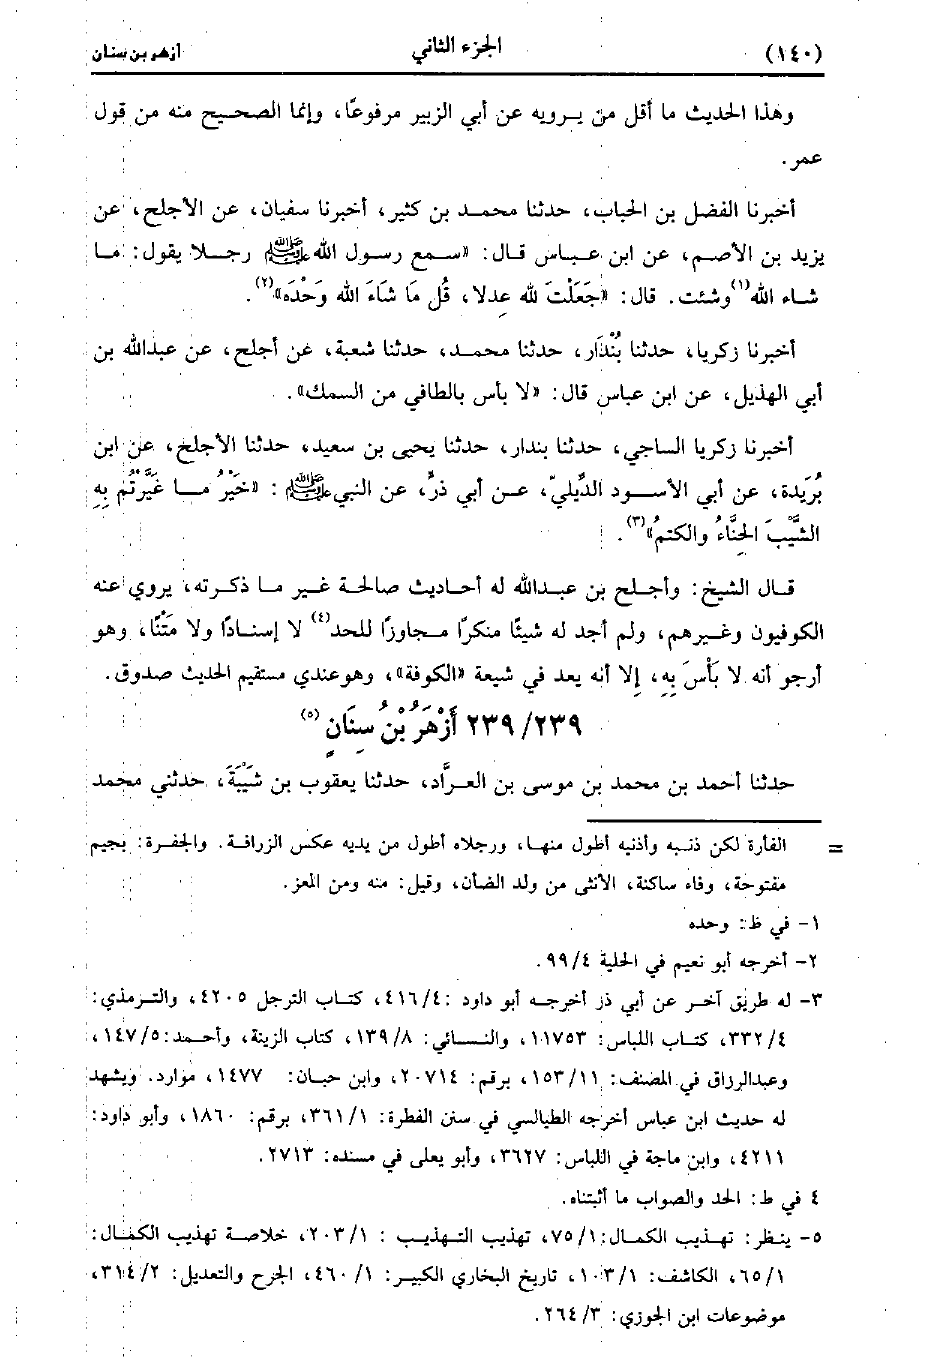 (١٤٠) الجزء الثاني أزهر بن سنان
وهذا الحديث ما أقل من يرويه عن أبي الزبير مرفوعًا، وإنما الصحيح منه من قول
عمر.
أخبرنا الفضل بن الحباب، حدثنا محمد بن كثير، أخبرنا سفيان، عن الأجلح، عن
يزيد بن الأصم، عن ابن عباس قال: «سمع رسول الله ﷺ رجلا يقول: ما
شاء الله(١) وشئت. قال: «جَعَلْتَ لله عدلا، قُل مَا شَاءَ الله وَحْدَه»(٢).
أخبرنا زكريا، حدثنا بُنْدَار، حدثنا محمد، حدثنا شعبة، عن أجلح، عن عبدالله بن
أبي الهذيل، عن ابن عباس قال: «لا بأس بالطافي من السمك».
أخبرنا زكريا الساجي، حدثنا بندار، حدثنا يحيى بن سعيد، حدثنا الأجلح، عن ابن
بُرَيدة، عن أبي الأسود الدِّيليّ، عن أبي ذرٍّ، عن النبي ﷺ: «خَيْرُ ما غَيَّرْتُمْ بِهِ
الشَّيْبَ الحِنَّاءُ والكتمُ»(٣).
قال الشيخ: وأجلح بن عبدالله له أحاديث صالحة غير ما ذكرته، يروي عنه
الكوفيون وغيرهم، ولم أجد له شيئًا منكرًا مجاوزًا للحد(٤) لا إسنادًا ولا مَتْنًا، وهو
أرجو أنه لا بَأْسَ بِهِ، إلا أنه يعد في شيعة «الكوفة»، وهو عندي مستقيم الحديث صدوق.
٢٣٩/٢٣٩ أَزْهَرُ بْنُ سِنَانٍ(٥)
حدثنا أحمد بن محمد بن موسى بن العرَّاد، حدثنا يعقوب بن شَيْبَةَ، حدثني محمد
= الفأرة لكن ذنبه وأذنيه أطول منها، ورجلاه أطول من يديه عكس الزرافة. والجفرة: بجيم
مفتوحة، وفاء ساكنة، الأنثى من ولد الضأن، وقيل: منه ومن المعز.
١- في ظ: وحده
٢- أخرجه أبو نعيم في الحلية ٩٩/٤.
٣- له طريق آخر عن أبي ذر أخرجه أبو داود: ٤١٦/٤، كتاب الترجل ٤٢٠٥، والترمذي:
٣٣٢/٤، كتاب اللباس: ١١٧٥٣، والنسائي: ١٣٩/٨، كتاب الزينة، وأحمد: ١٤٧/٥،
وعبدالرزاق في المصنف: ١٥٣/١١، برقم: ٢٠٧١٤، وابن حبان: ١٤٧٧، موارد. ويشهد
له حديث ابن عباس أخرجه الطيالسي في سنن الفطرة: ٣٦١/١، برقم: ١٨٦٠، وأبو داود:
٤٢١١، وابن ماجة في اللباس: ٣٦٢٧، وأبو يعلى في مسنده: ٢٧١٣.
٤ في ط: الحد والصواب ما أثبتناه.
٥- ينظر: تهذيب الكمال: ٧٥/١، تهذيب التهذيب: ٢٠٣/١، خلاصة تهذيب الكمال:
٦٥/١، الكاشف: ١٠٣/١، تاريخ البخاري الكبير: ٤٦٠/١، الجرح والتعديل: ٣١٤/٢،
موضوعات ابن الجوزي: ٢٦٤/٣.